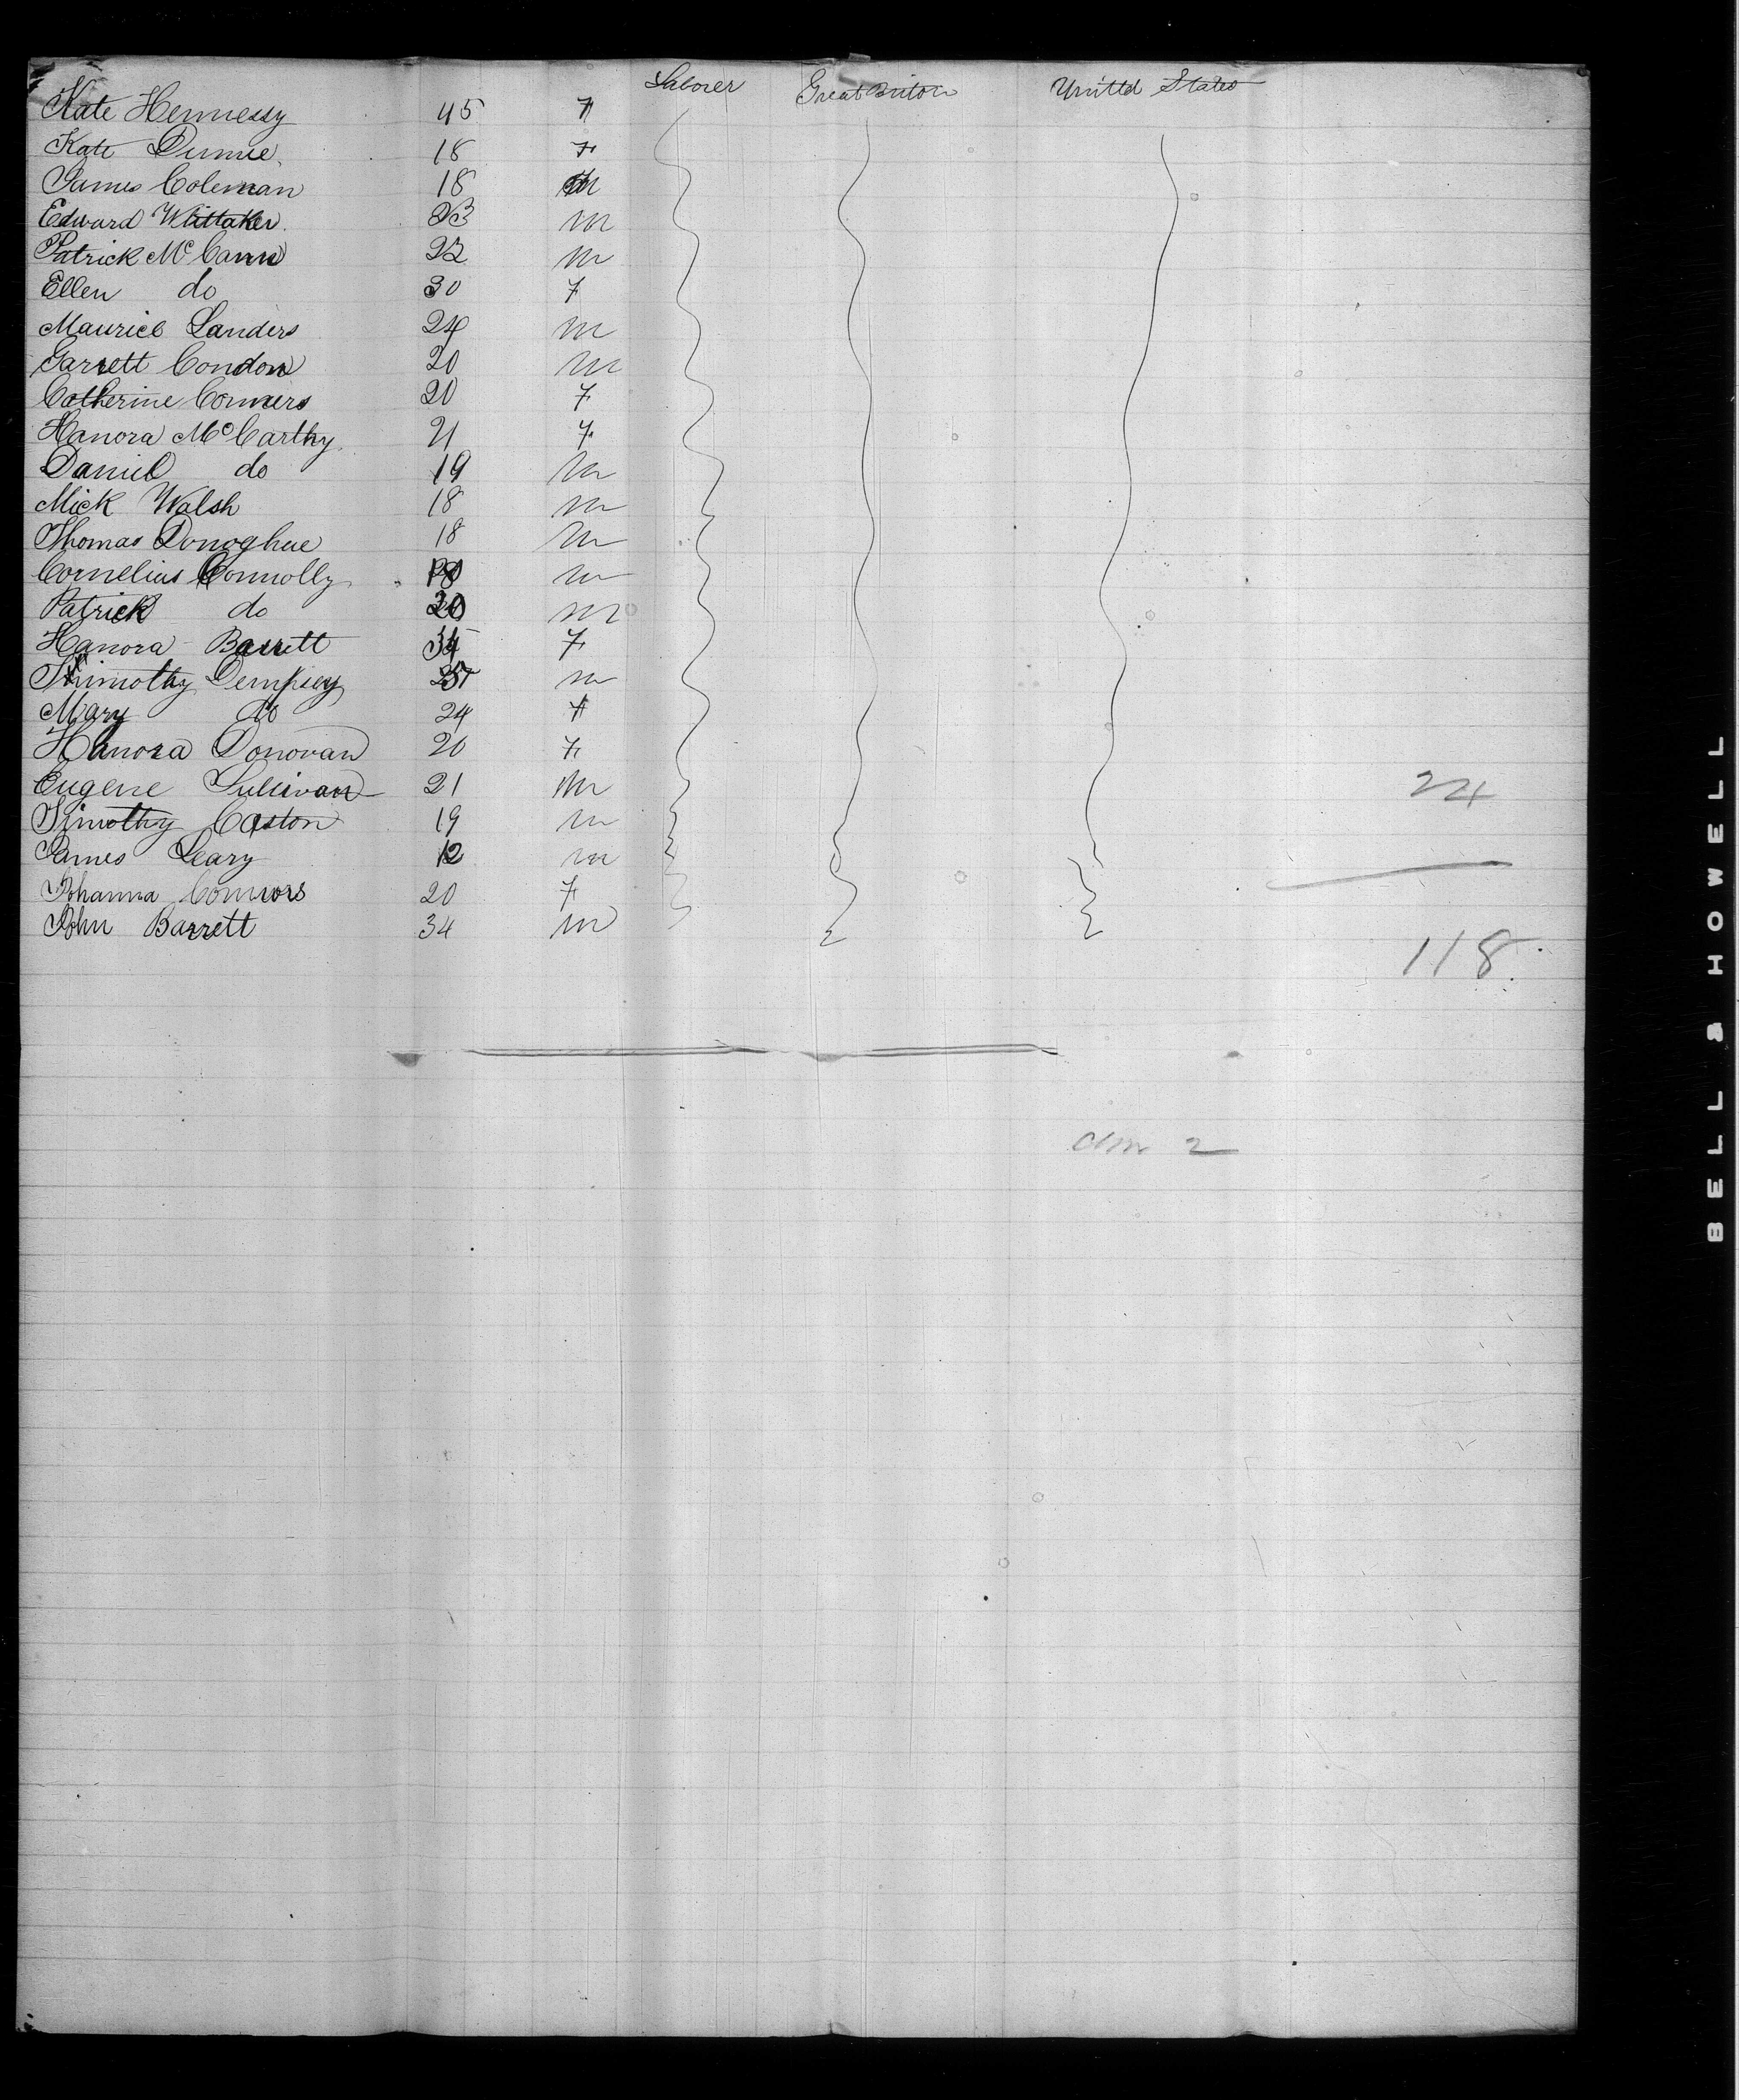 Laborer Great Britain United States
Kate Hennessy 45 F
Kate Dunne 18 F
James Coleman 18 M
Edward Whittaker 23 M
Patrick McCann 22 M
Ellen do 30 F
Maurice Landers 24 M
Garrett Condon 20 M
Catherine Conners 20 F
Hanora McCarthy 21 F
Daniel do 19 M
Mick Walsh 18 M
Thomas Donoghue 18 M
Cornelius Connolly M
Patrick do 20 M
Hanora Barrett 34 F
Timothy Dempsey M
Mary do 24 F
Hanora Donovan 20 F
Eugene Sullivan 21 M
Timothy Caston 19 M
James Leary 12 M
Johanna Connors 20 F
John Barrett 34 M
24
118
2
BELL & HOWELL